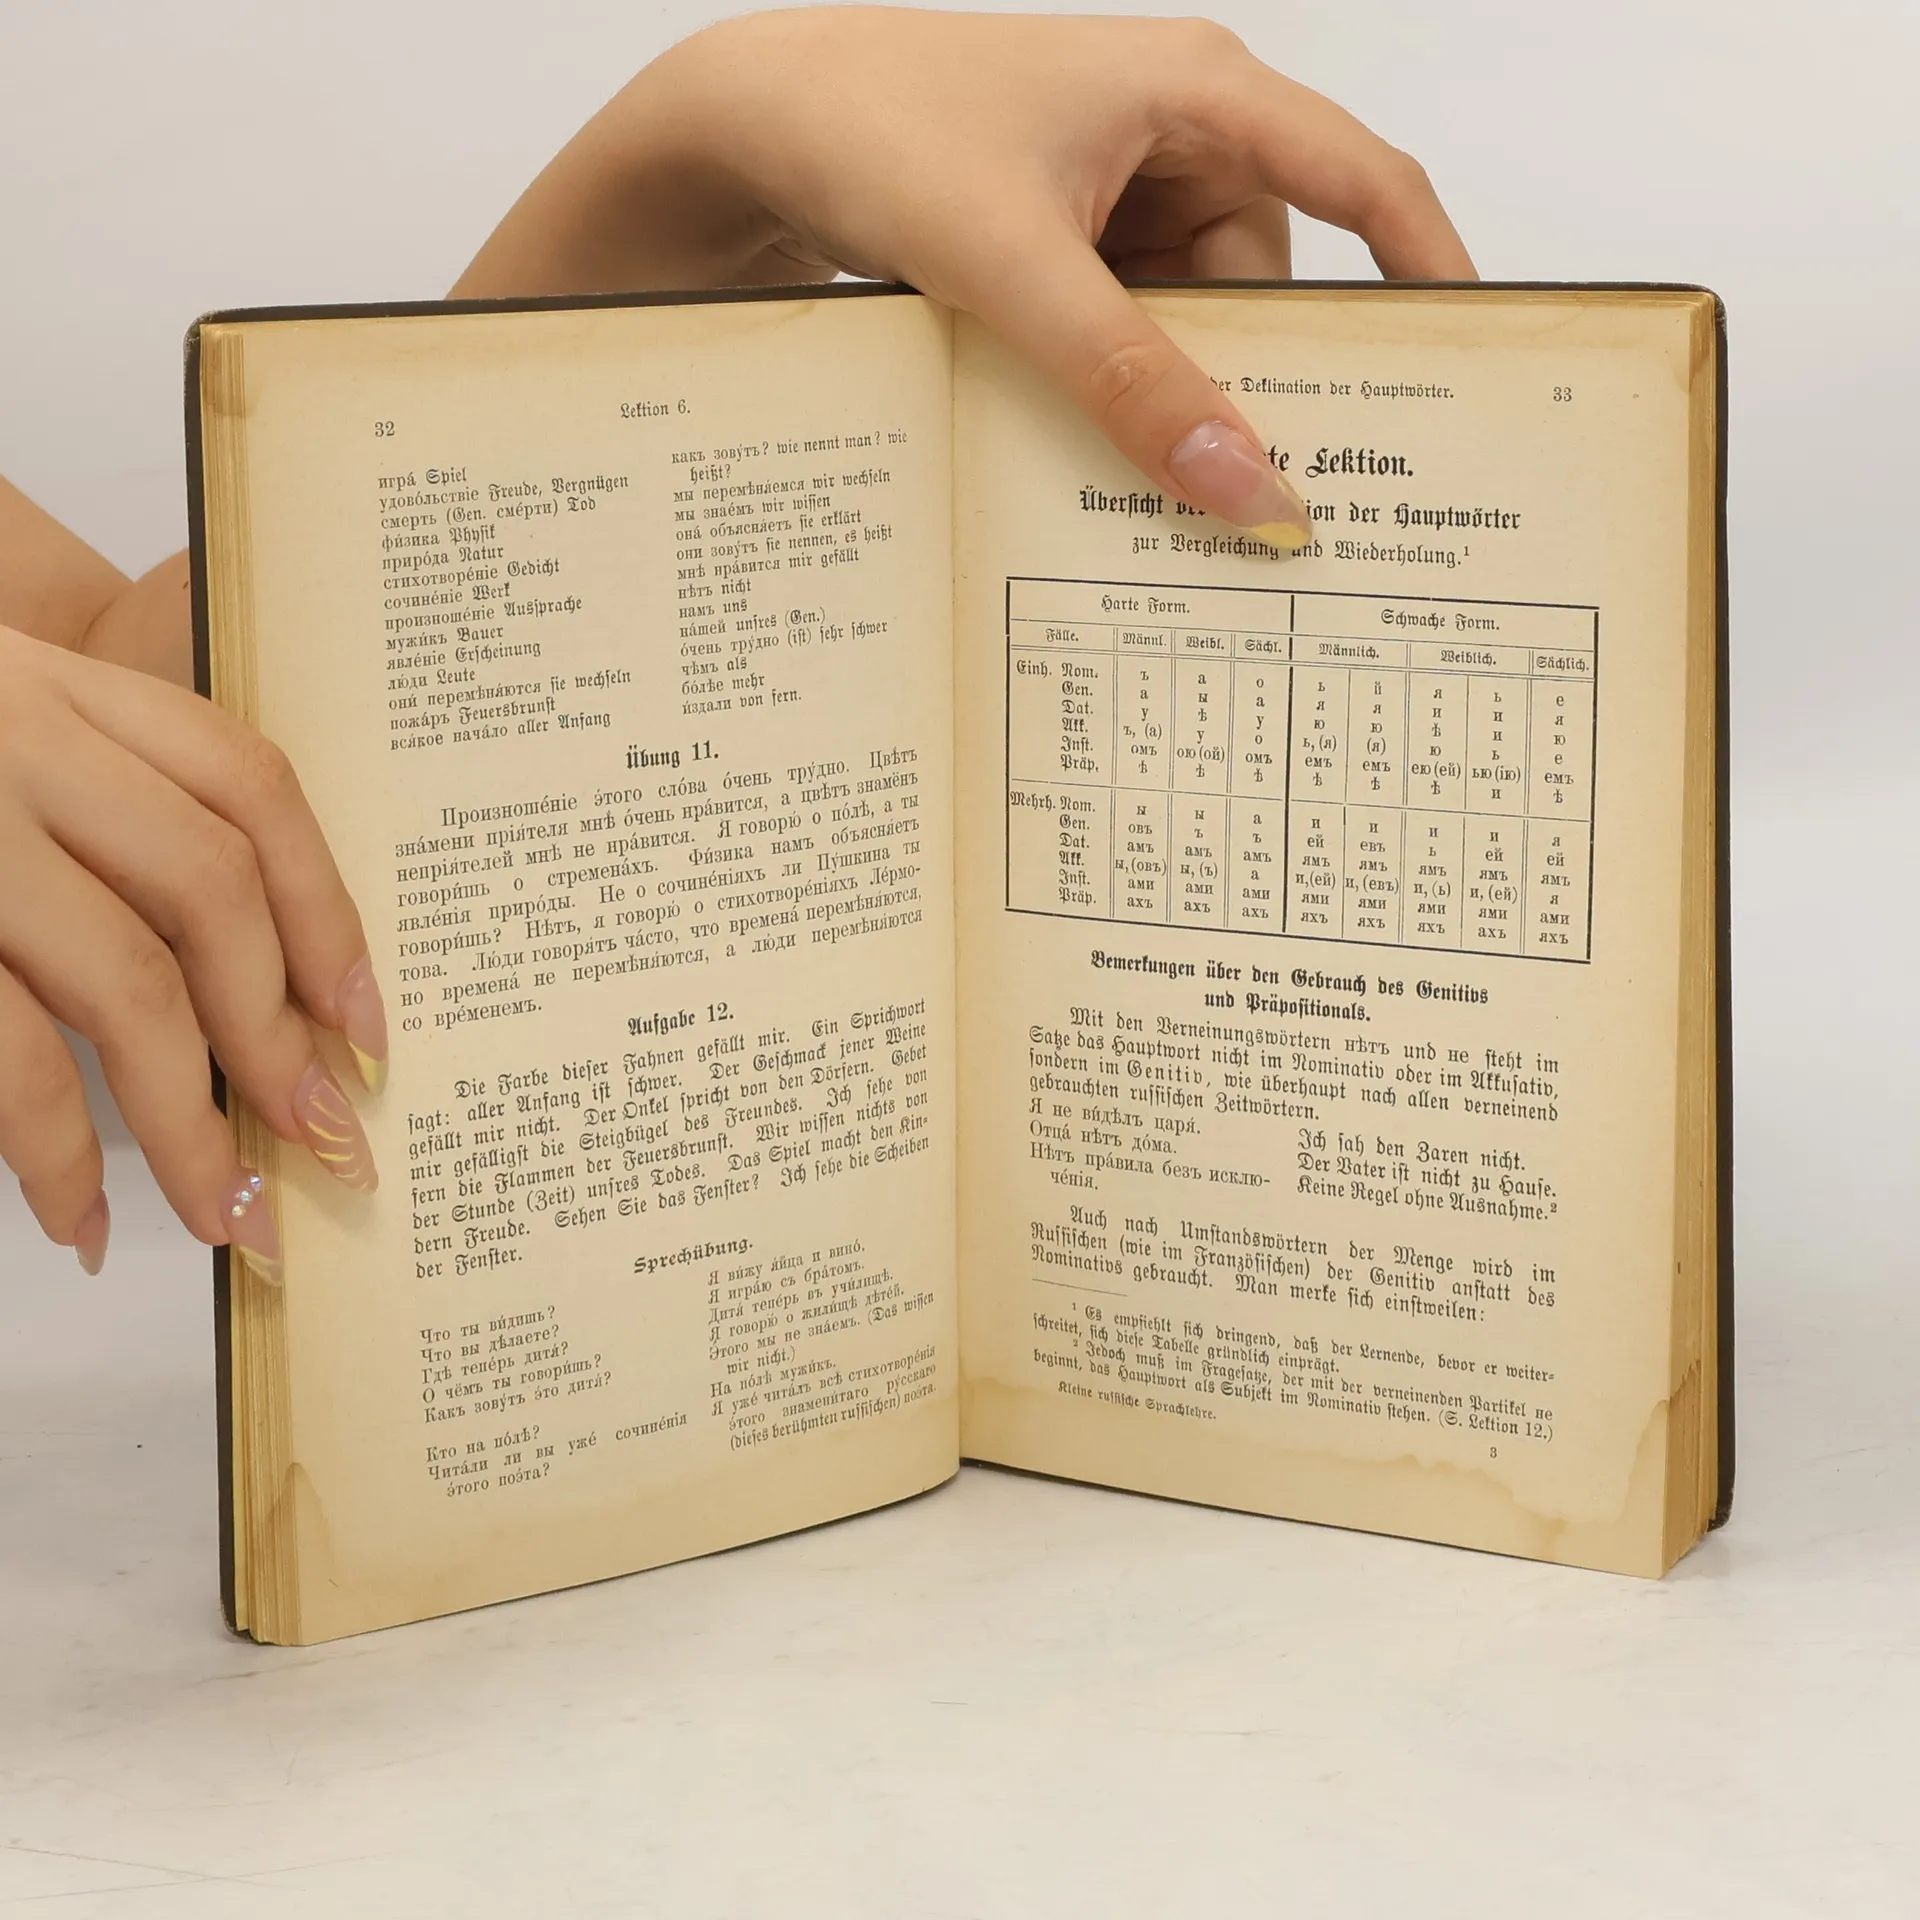 32
Lektion 6.
игра́ Spiel
удово́льствіе Freude, Vergnügen
смерть (Gen. сме́рти) Tod
фи́зика Physik
приро́да Natur
стихотворе́ніе Gedicht
сочине́ніе Werk
произноше́ніе Aussprache
мужи́къ Bauer
явле́ніе Erscheinung
лю́ди Leute
они́ перемѣня́ются sie wechseln
пожа́ръ Feuersbrunst
вся́кое нача́ло aller Anfang
какъ зову́тъ? wie nennt man? wie
heißt?
мы перемѣня́емся wir wechseln
мы зна́емъ wir wissen
она́ объясня́етъ sie erklärt
они зову́тъ sie nennen, es heißt
мнѣ нра́вится mir gefällt
нѣтъ nicht
намъ uns
на́шей unsres (Gen.)
о́чень тру́дно (ist) sehr schwer
чѣмъ als
бо́лѣе mehr
и́здали von fern.
Übung 11.
Произноше́ніе э́того сло́ва о́чень тру́дно. Цвѣтъ
зна́мени прія́теля мнѣ о́чень нра́вится, а цвѣтъ знамёнъ
непрія́телей мнѣ не нра́вится. Я говорю́ о по́лѣ, а ты
говори́шь о стремена́хъ. Фи́зика намъ объясня́етъ
явле́нія приро́ды. Не о сочине́ніяхъ ли Пу́шкина ты
говори́шь? Нѣтъ, я говорю́ о стихотворе́ніяхъ Ле́рмо-
това. Лю́ди говоря́тъ ча́сто, что времена́ перемѣня́ются,
но времена́ не перемѣня́ются, а лю́ди перемѣня́ются
со вре́менемъ.
Aufgabe 12.
Die Farbe dieser Fahnen gefällt mir. Ein Sprichwort
sagt: aller Anfang ist schwer. Der Geschmack jener Weine
gefällt mir nicht. Der Onkel spricht von den Dörfern. Gebet
mir gefälligst die Steigbügel des Freundes. Ich sehe von
fern die Flammen der Feuersbrunst. Wir wissen nichts von
der Stunde (Zeit) unsres Todes. Das Spiel macht den Kin-
dern Freude. Sehen Sie das Fenster? Ich sehe die Scheiben
der Fenster.
Sprechübung.
Что ты ви́дишь?
Что вы дѣ́лаете?
Гдѣ тепе́рь дитя́?
О чёмъ ты говори́шь?
Какъ зову́тъ э́то дитя́?
Кто на по́лѣ?
Чита́ли ли вы уже́ сочине́нія
э́того поэ́та?
Я ви́жу я́йца и вино́.
Я игра́ю съ бра́томъ.
Дитя́ тепе́рь въ учи́лищѣ.
Я говорю́ о жили́щѣ дѣте́й.
Э́того мы не зна́емъ. (Das wissen
wir nicht.)
На по́лѣ мужи́къ.
Я уже́ чита́лъ всѣ стихотворе́нія
э́того знамени́таго ру́сскаго
(dieses berühmten russischen) поэ́та.
der Deklination der Hauptwörter.
33
te Lektion.
Übersicht ion der Hauptwörter
zur Vergleichung und Wiederholung.¹
Harte Form. Schwache Form.
Fälle. Männl. Weibl. Sächl. Männlich. Weiblich. Sächlich.
Einh. Nom. ъ а о ь й я ь е
Gen. а ы а я я и и я
Dat. у ѣ у ю ю ѣ и ю
Akk. ъ, (а) у о ь, (я) (я) ю ь е
Inst. омъ ою (ой) омъ емъ емъ ею (ей) ью (ію) емъ
Präp. ѣ ѣ ѣ ѣ ѣ ѣ и ѣ
Mehrh. Nom. ы ы а и и и и я
Gen. овъ ъ ъ ей евъ ь ей ей
Dat. амъ амъ амъ ямъ ямъ ямъ ямъ ямъ
Akk. ы, (овъ) ы, (ъ) а и, (ей) и, (евъ) и, (ь) и, (ей) я
Inst. ами ами ами ями ями ями ями ами
Präp. ахъ ахъ ахъ яхъ яхъ яхъ ахъ яхъ
Bemerkungen über den Gebrauch des Genitivs
und Präpositionals.
Mit den Verneinungswörtern нѣтъ und не steht im
Satze das Hauptwort nicht im Nominativ oder im Akkusativ,
sondern im Genitiv, wie überhaupt nach allen verneinend
gebrauchten russischen Zeitwörtern.
Я не ви́дѣлъ царя́. Ich sah den Zaren nicht.
Отца́ нѣтъ до́ма. Der Vater ist nicht zu Hause.
Нѣтъ пра́вила безъ исклю- Keine Regel ohne Ausnahme.²
че́нія.
Auch nach Umstandswörtern der Menge wird im
Russischen (wie im Französischen) der Genitiv anstatt des
Nominativs gebraucht. Man merke sich einstweilen:
¹ Es empfiehlt sich dringend, daß der Lernende, bevor er weiter-
schreitet, sich diese Tabelle gründlich einprägt.
² Jedoch muß im Fragesatze, der mit der verneinenden Partikel не
beginnt, das Hauptwort als Subjekt im Nominativ stehen. (S. Lektion 12.)
Kleine russische Sprachlehre.
3